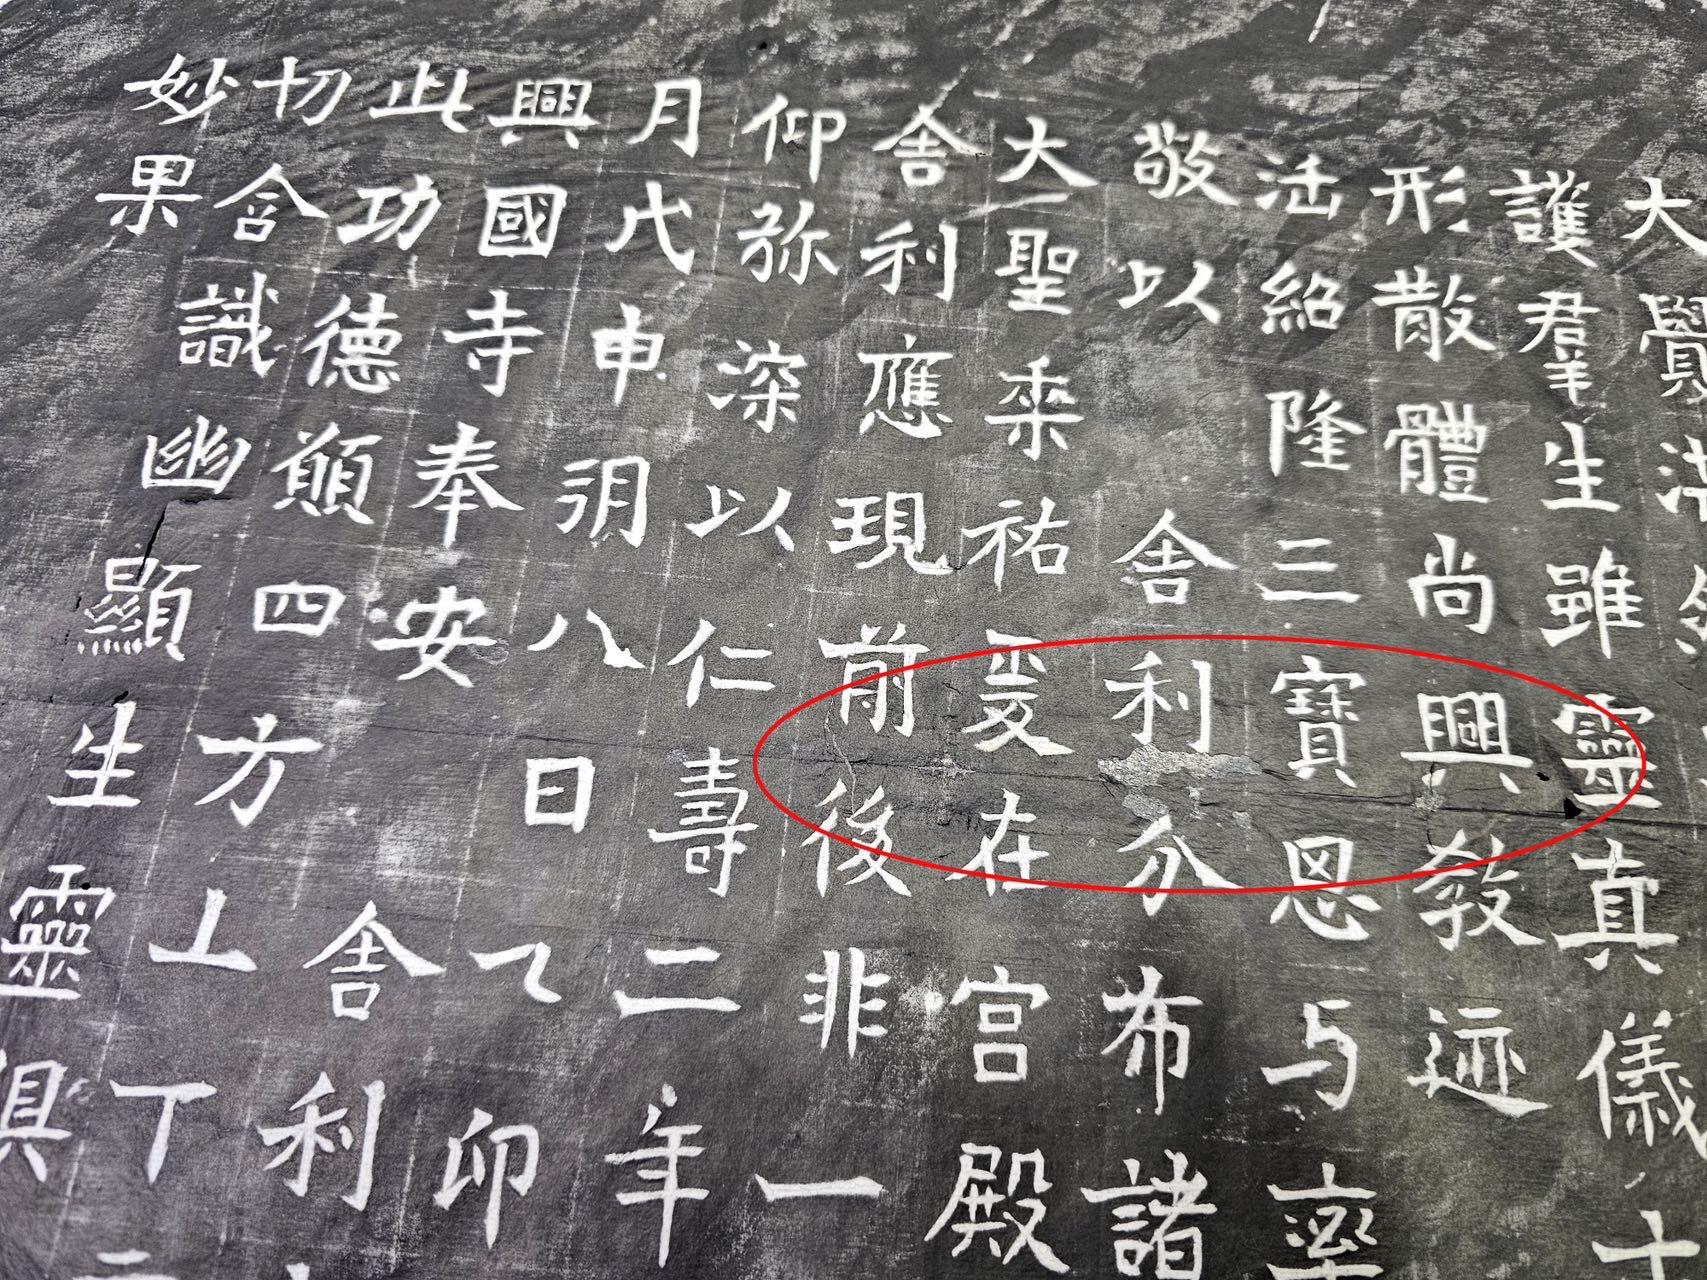 大覺法
護羣生雖靈真儀十
形散體尚興教迹
法紹隆三寶恩与率
敬以舍利分布諸
大聖乘祐爰在宮殿
舍利應現前後非一
仰弥深以仁壽二年
月戊申朔八日乙卯
興國寺奉安舍利
此功德願四方丄丅
切含識幽顯生靈俱
妙果